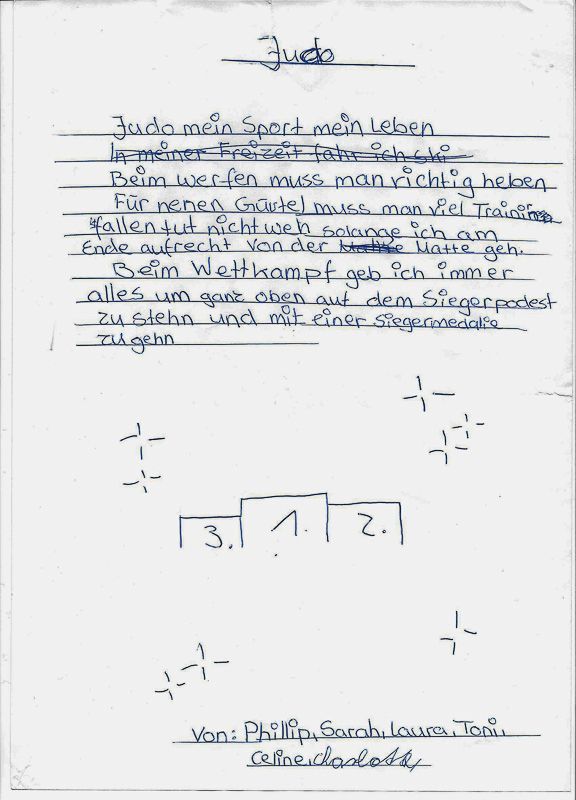 Judo
Judo mein Sport mein Leben
In meiner Freizeit fahr ich ski
Beim werfen muss man richtig heben
Für nenen Gürtel muss man viel Training
fallen tut nicht weh solange ich am
Ende aufrecht von der Matte geh.
Beim Wettkampf geb ich immer
alles um ganz oben auf dem Siegerpodest
zu stehn und mit einer Siegermedalie
zu gehn
3. 1. 2.
Von: Phillip, Sarah, Laura, Toni,
Celine, Charlotte